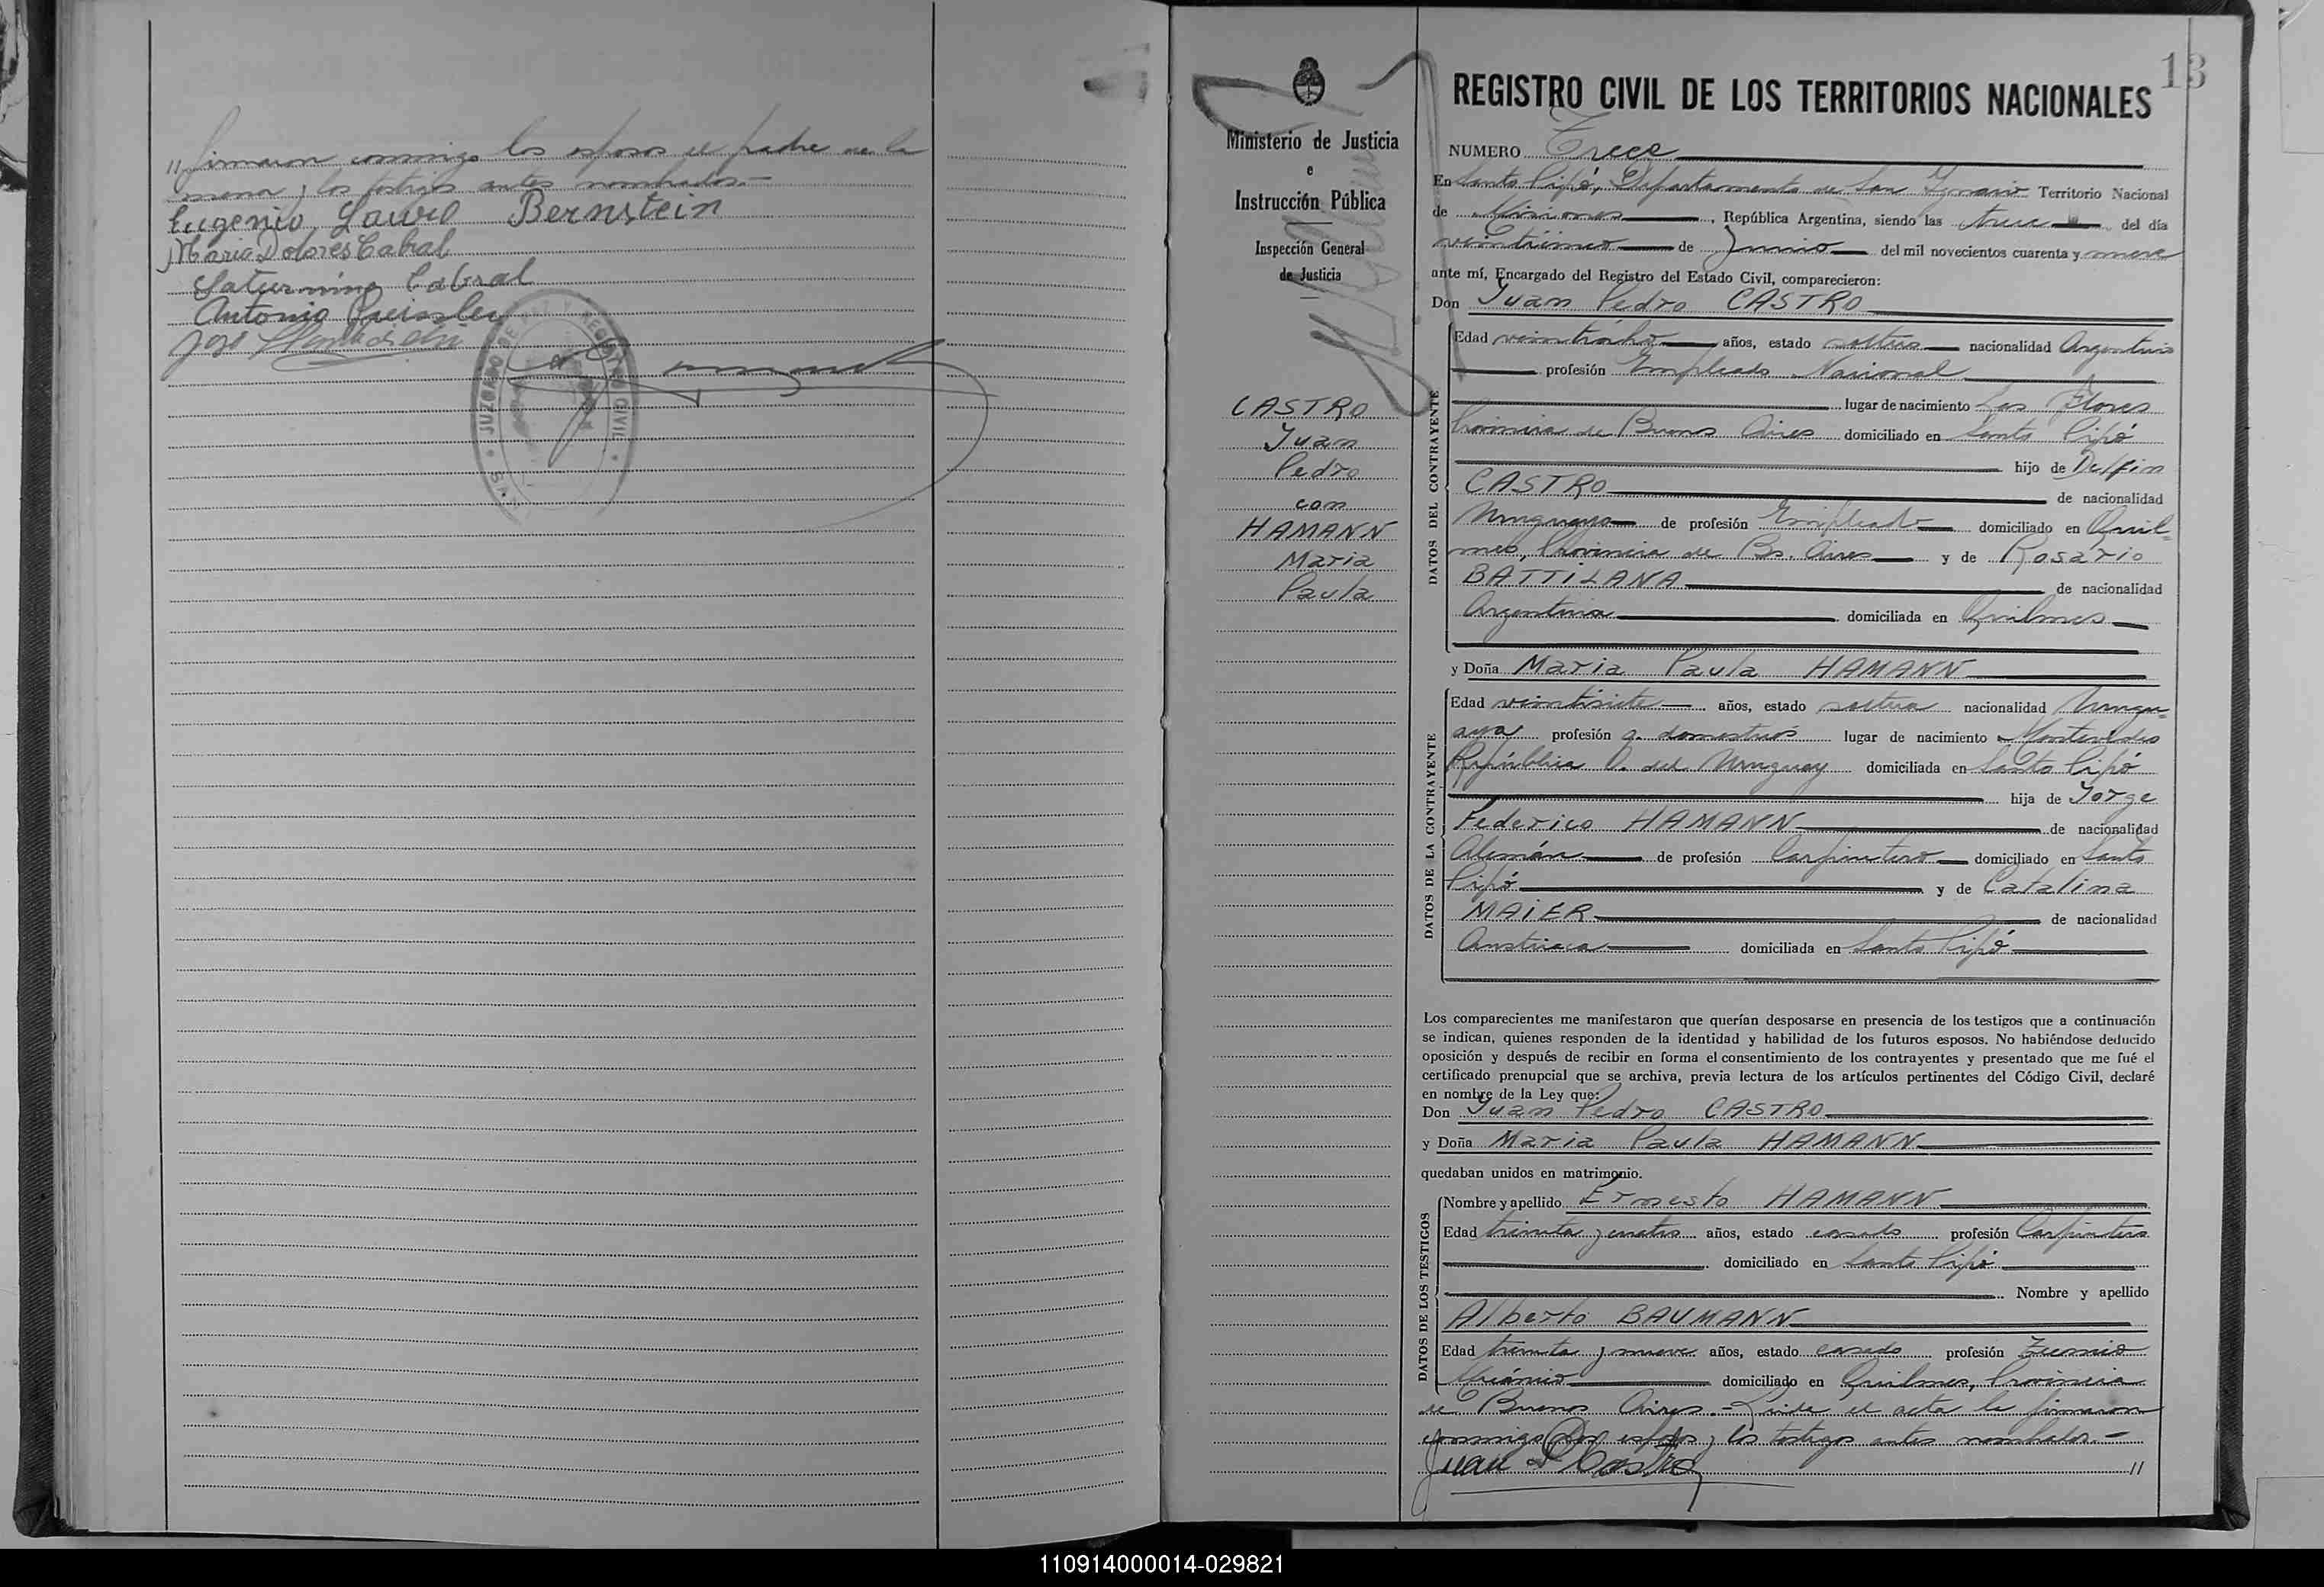 // firmaron conmigo los esposos el padre de la
menor y los testigos antes nombrados.-
Eugenio Lauro Bernstein
Maria Dolores Cabral
Saturnino Cabral
Antonio
José
JUZGADO DE
REGISTRO CIVIL
13
Ministerio de Justicia
e
Instrucción Pública
Inspección General
de Justicia
CASTRO
Juan
Pedro
con
HAMANN
Maria
Paula
REGISTRO CIVIL DE LOS TERRITORIOS NACIONALES
NUMERO Trece
En Santo Pipó, Departamento de San Ignacio Territorio Nacional
de Misiones, República Argentina, siendo las trece del día
veinticinco de Junio del mil novecientos cuarenta y nueve
ante mí, Encargado del Registro del Estado Civil, comparecieron:
Don Juan Pedro CASTRO
DATOS DEL CONTRAYENTE
Edad veintiocho años, estado soltero nacionalidad Argentino
profesión Empleado Nacional
lugar de nacimiento Las Flores
Provincia de Buenos Aires domiciliado en Santo Pipó
hijo de Delfin
CASTRO de nacionalidad
Uruguayo de profesión Empleado domiciliado en Quil-
mes, Provincia de Bs. Aires y de Rosario
BATTILANA de nacionalidad
Argentina domiciliada en Quilmes
y Doña Maria Paula HAMANN
DATOS DE LA CONTRAYENTE
Edad veintisiete años, estado soltera nacionalidad Urugu-
aya profesión q. domesticos lugar de nacimiento Montevideo
República O. del Uruguay domiciliada en Santo Pipó
hija de Jorge
Federico HAMANN de nacionalidad
Alemán de profesión Carpintero domiciliado en Santo
Pipó y de Catalina
MAiER de nacionalidad
Austriaca domiciliada en Santo Pipó
Los comparecientes me manifestaron que querían desposarse en presencia de los testigos que a continuación
se indican, quienes responden de la identidad y habilidad de los futuros esposos. No habiéndose deducido
oposición y después de recibir en forma el consentimiento de los contrayentes y presentado que me fué el
certificado prenupcial que se archiva, previa lectura de los artículos pertinentes del Código Civil, declaré
en nombre de la Ley que:
Don Juan Pedro CASTRO
y Doña Maria Paula HAMANN
quedaban unidos en matrimonio.
DATOS DE LOS TESTIGOS
Nombre y apellido Ernesto HAMANN
Edad treinta y cuatro años, estado casado profesión Carpintero
domiciliado en Santo Pipó
Nombre y apellido
Alberto BAUMANN
Edad treinta y nueve años, estado casado profesión Tecnico
Mecánico domiciliado en Quilmes, Provincia
de Buenos Aires.- Leida el acta la firmaron
conmigo los esposos y los testigos antes nombrados.-
Juan P Castro //
110914000014-029821